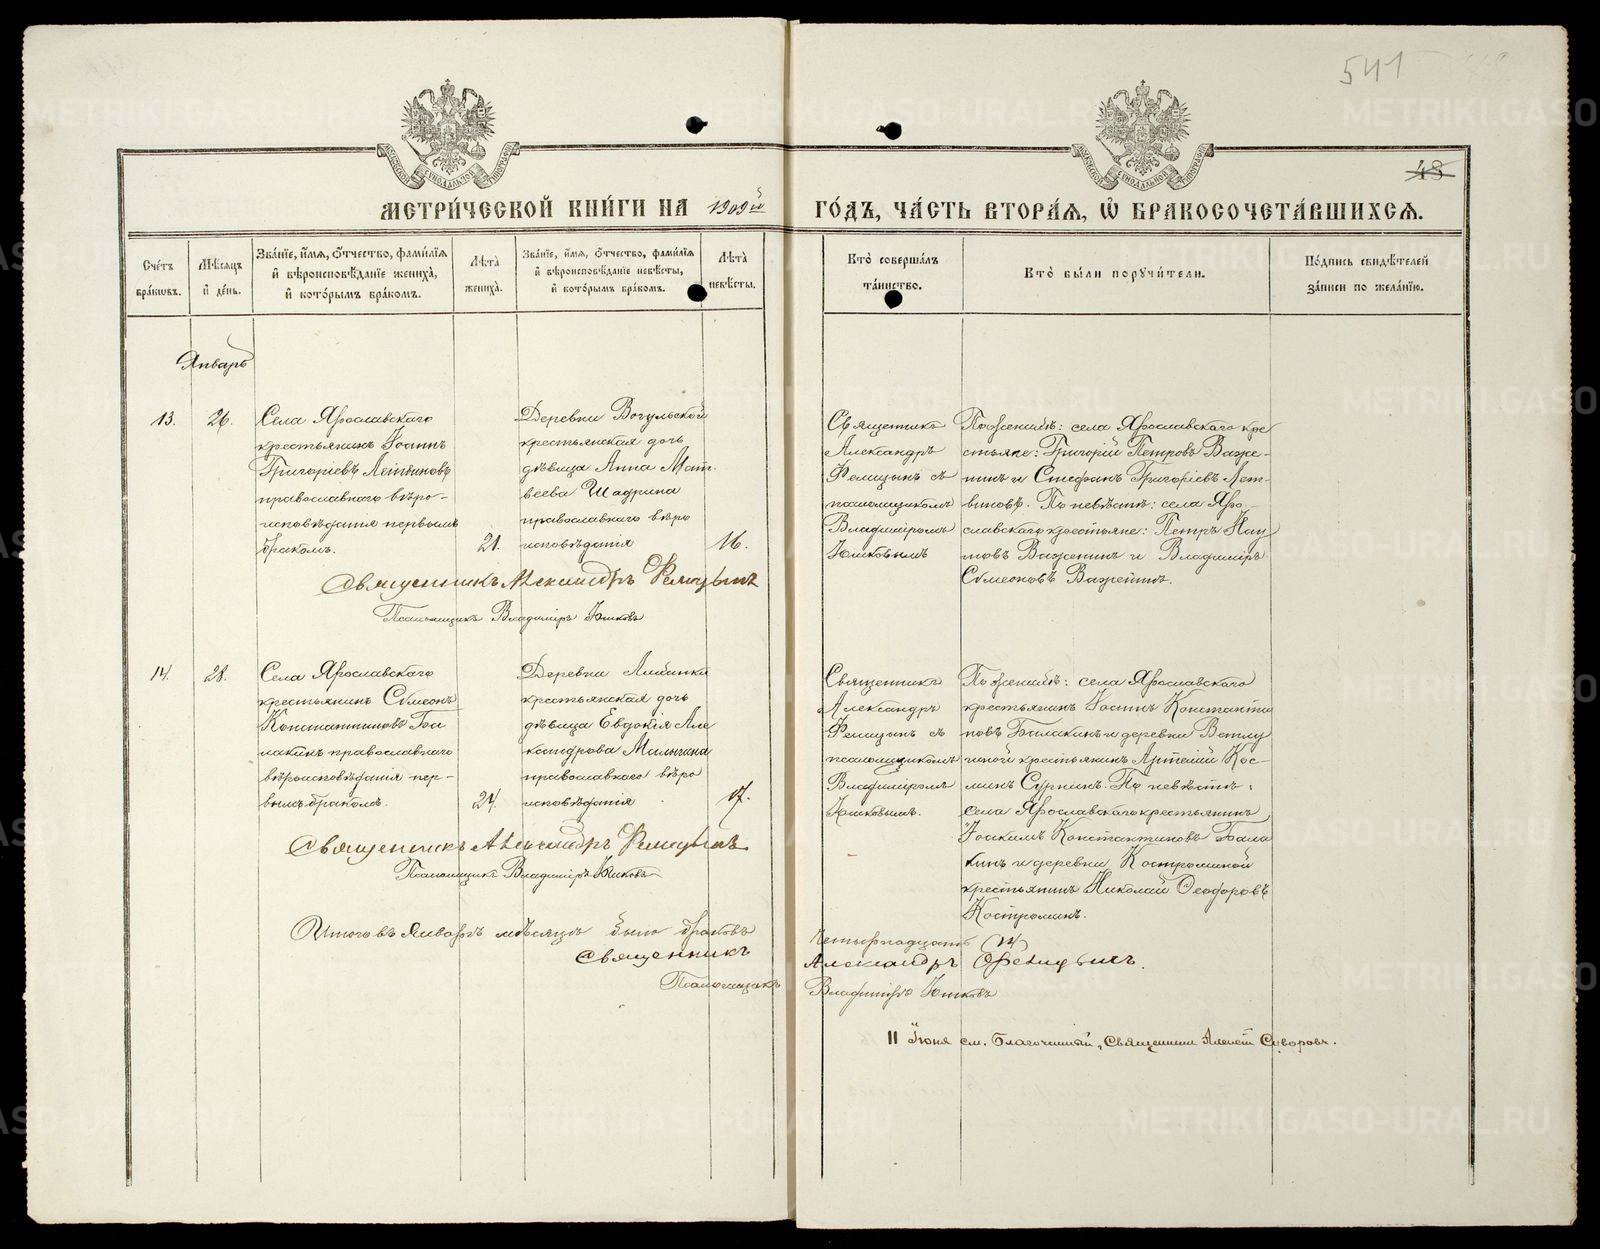 541
48
МЕТРИ́ЧЕСКОЙ КНИ́ГИ НА 1909й ГО́ДЪ, ЧА́СТЬ ВТОРА́Я, Ѡ БРАКОСОЧЕТА́ВШИХСЯ.
Сче́тъ бра́ковъ.
Мѣ́сяцъ и де́нь.
Зва́нїе, и́мя, ѻ́тчество, фами́лїя
и вѣроисповѣ́данїе жениха̀,
и кото́рымъ бра́комъ.
Лѣта̀ жениха̀.
Зва́нїе, и́мя, ѻ́тчество, фами́лїя
и вѣроисповѣ́данїе невѣ́сты,
и кото́рымъ бра́комъ.
Лѣта̀ невѣ́сты.
Кто̀ соверша́лъ та́инство.
Кто̀ бы́ли поручи́тели.
По́дпись свидѣ́телей
за́писи по жела́нїю.
Январь
13. 26.
Села Ярославскаго
крестьянинъ Іоаннъ
Григоріевъ
православнаго вѣро-
исповѣданія первымъ
бракомъ. 21.
Деревни Вогульской
крестьянская дочь
дѣвица Анна Мат.
веева Шадрина
православнаго вѣро
исповѣданія 16.
Священникъ
Александръ
Фелицынъ съ
псаломщикомъ
Владиміромъ
Юшковымъ
По женихѣ: села Ярославскаго кре
стьяне: Григорій Петровъ Важе-
нинъ и Стефанъ Григоріевъ
По невѣстѣ: села Яро-
славскаго крестьяне: Петръ
Важенинъ и Владиміръ
Сѵмеоновъ Важенинъ.
Священникъ Александръ Фелицынъ
Псаломщикъ Владиміръ Юшковъ
14. 28.
Села Ярославскаго
крестьянинъ Сѵмеонъ
Константиновъ Ба
лакинъ православнаго
вѣроисповѣданія пер-
вымъ бракомъ. 24.
Деревни
крестьянская дочь
дѣвица Евдокія Але
ксандрова
православнаго вѣро
исповѣданія 17.
Священникъ
Александръ
Фелицынъ съ
псаломщикомъ
Владиміромъ
Юшковымъ.
По женихѣ: села Ярославскаго
крестьянинъ Іоаннъ Константи
новъ Балакинъ и деревни
крестьянинъ Артемій Кос-
минъ По невѣстѣ:
села Ярославскаго крестьянинъ
Іоакимъ Константиновъ Бала
кинъ и деревни Костроминой
крестьянинъ Николай Ѳеодоровъ
Костроминъ.
Священникъ Александръ Фелицынъ
Псаломщикъ Владиміръ Юшковъ
Итого въ Январѣ мѣсяцѣ было браковъ четырнадцать (14)
Священникъ Александръ Фелицынъ.
Псаломщикъ Владиміръ Юшковъ
11 Іюня см. Благочинный, Священникъ Алексій Суворовъ.
METRIKI.GASO-URAL.RU